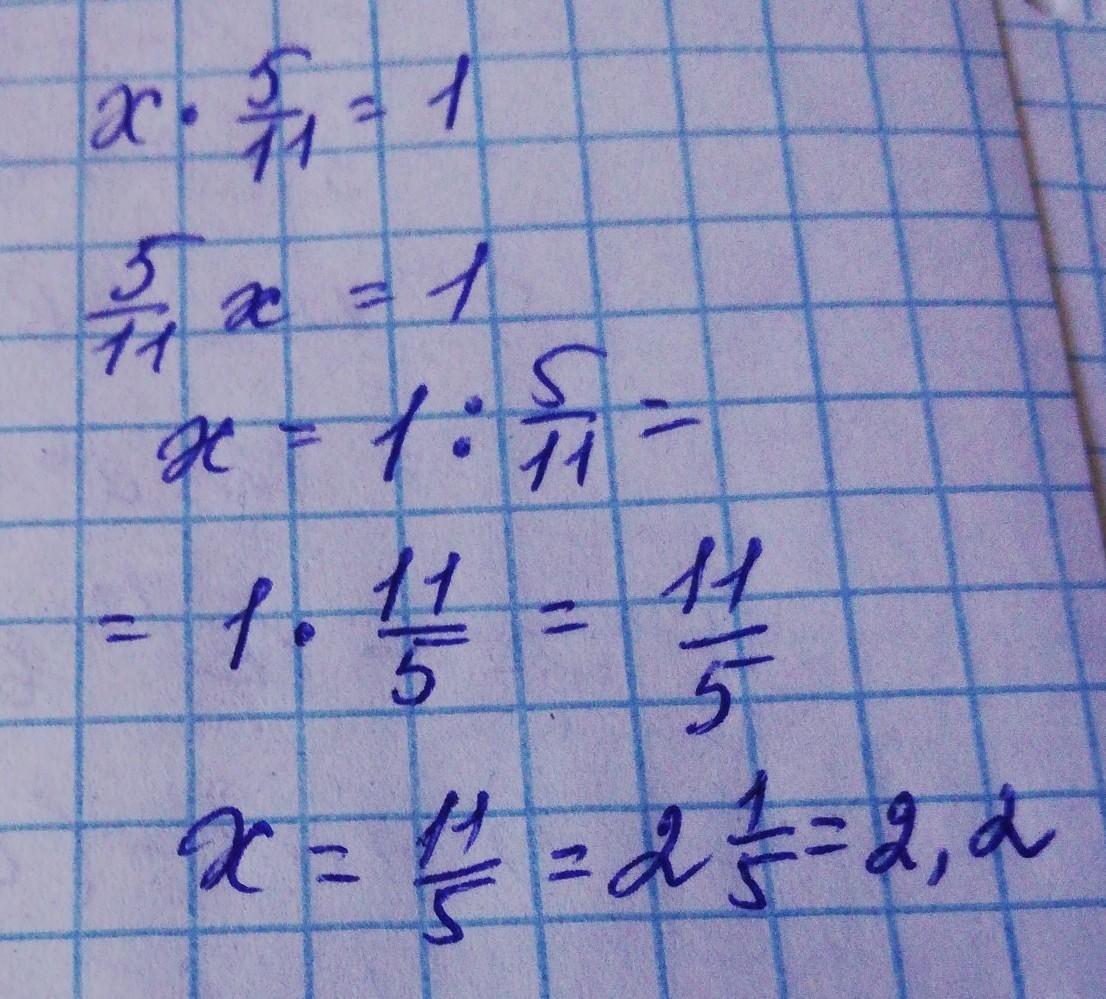 x · 5/11 = 1
5/11 x = 1
x = 1 : 5/11 =
= 1 · 11/5 = 11/5
x = 11/5 = 2 1/5 = 2,2